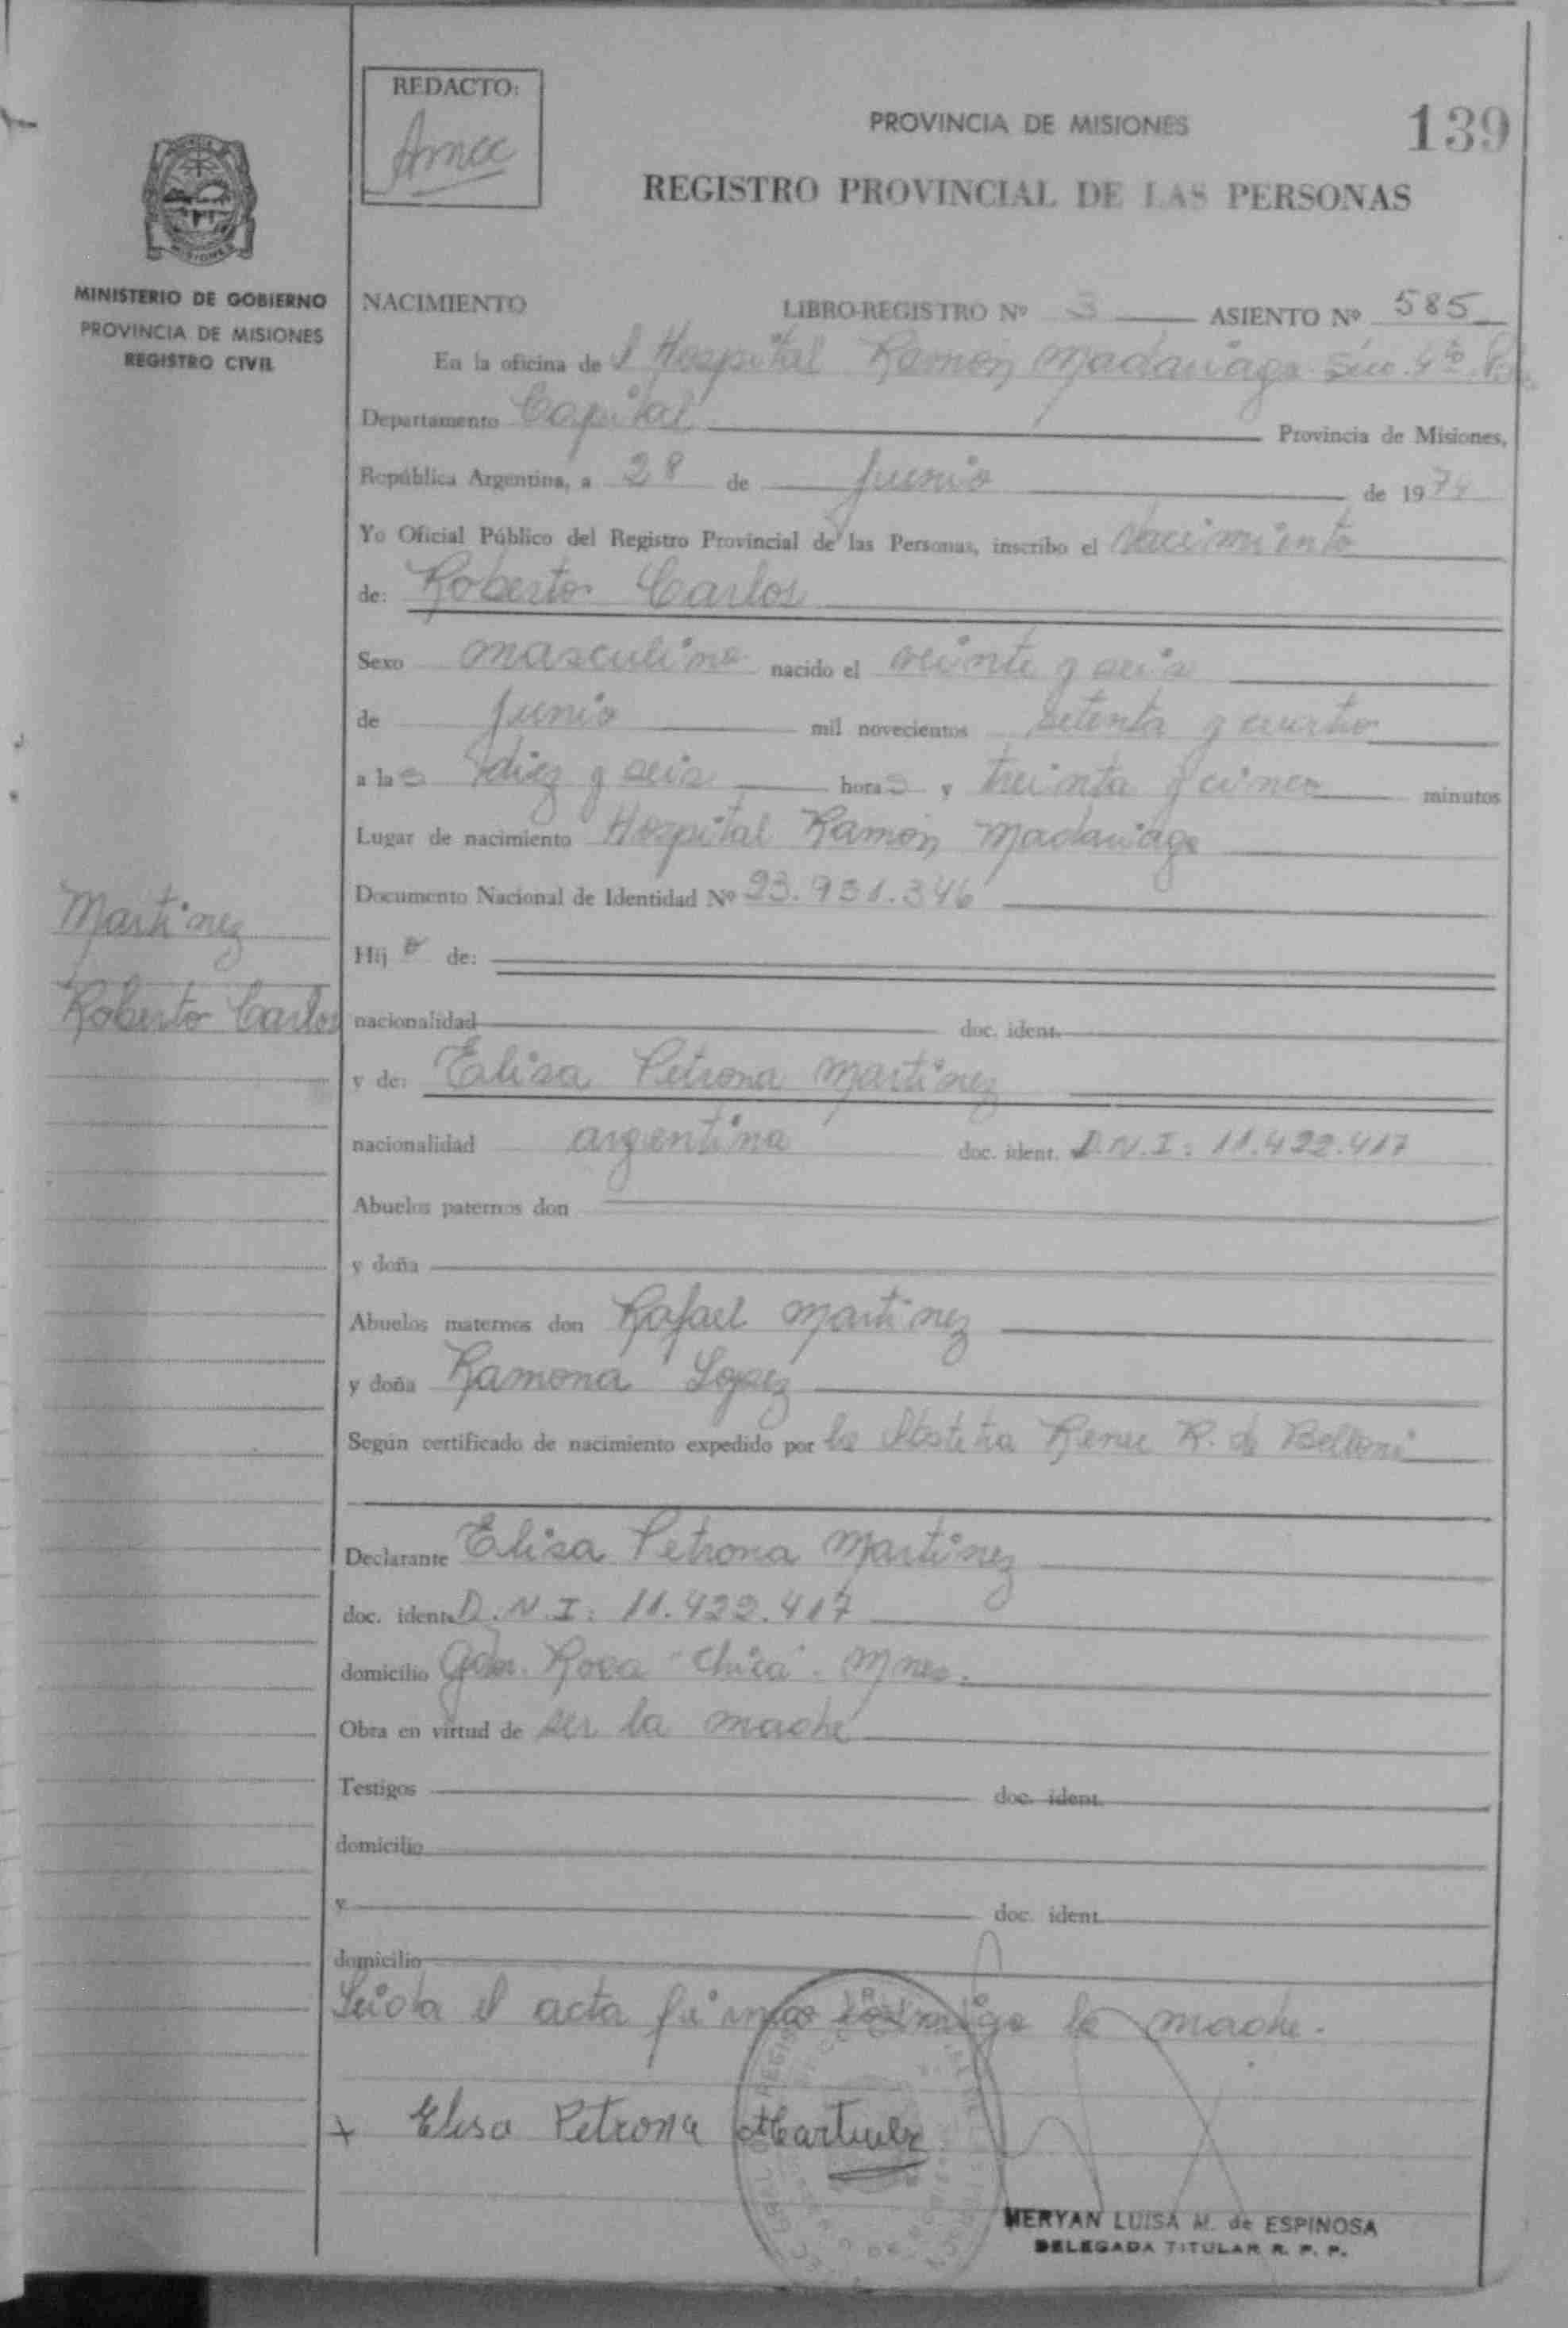 REDACTO:
PROVINCIA DE MISIONES
139
REGISTRO PROVINCIAL DE LAS PERSONAS
MISIONES
MINISTERIO DE GOBIERNO
PROVINCIA DE MISIONES
REGISTRO CIVIL
NACIMIENTO LIBRO-REGISTRO Nº 3 ASIENTO Nº 585
En la oficina de l Hospital Ramón Madariaga
Departamento Capital Provincia de Misiones,
República Argentina, a 28 de Junio de 1974
Yo Oficial Público del Registro Provincial de las Personas, inscribo el Nacimiento
de: Roberto Carlos
Sexo masculino nacido el veinte y seis
de Junio mil novecientos setenta y cuatro
a las diez y seis horas y treinta y cinco minutos
Lugar de nacimiento Hospital Ramón Madariaga
Documento Nacional de Identidad Nº 23.931.346
Martinez
Roberto Carlos
Hijo de:
nacionalidad doc. ident.
y de: Elisa Petrona Martinez
nacionalidad argentina doc. ident. D.N.I: 11.422.417
Abuelos paternos don
y doña
Abuelos maternos don Rafael Martinez
y doña Ramona Lopez
Según certificado de nacimiento expedido por la Obstetra Renee R. de Belloni
Declarante Elisa Petrona Martinez
doc. ident. D.N.I: 11.422.417
domicilio Gdor. Roca "Chica". Mnes.
Obra en virtud de ser la madre
Testigos doc. ident.
domicilio
y doc. ident.
domicilio
Leida el acta firma conmigo la madre.
x Elisa Petrona Martinez
MERYAN LUISA M. de ESPINOSA
DELEGADA TITULAR R. P. P.